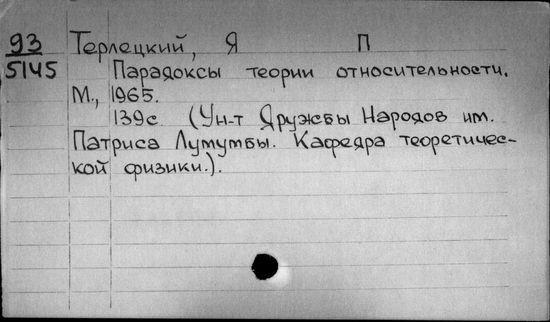 93 Терлецкий, Я П
5145 Парадоксы теории относительности.
М., 1965.
139с (Ун-т Дружбы Народов им.
Патриса Лумумбы. Кафедра теоретичес-
кой физики.).